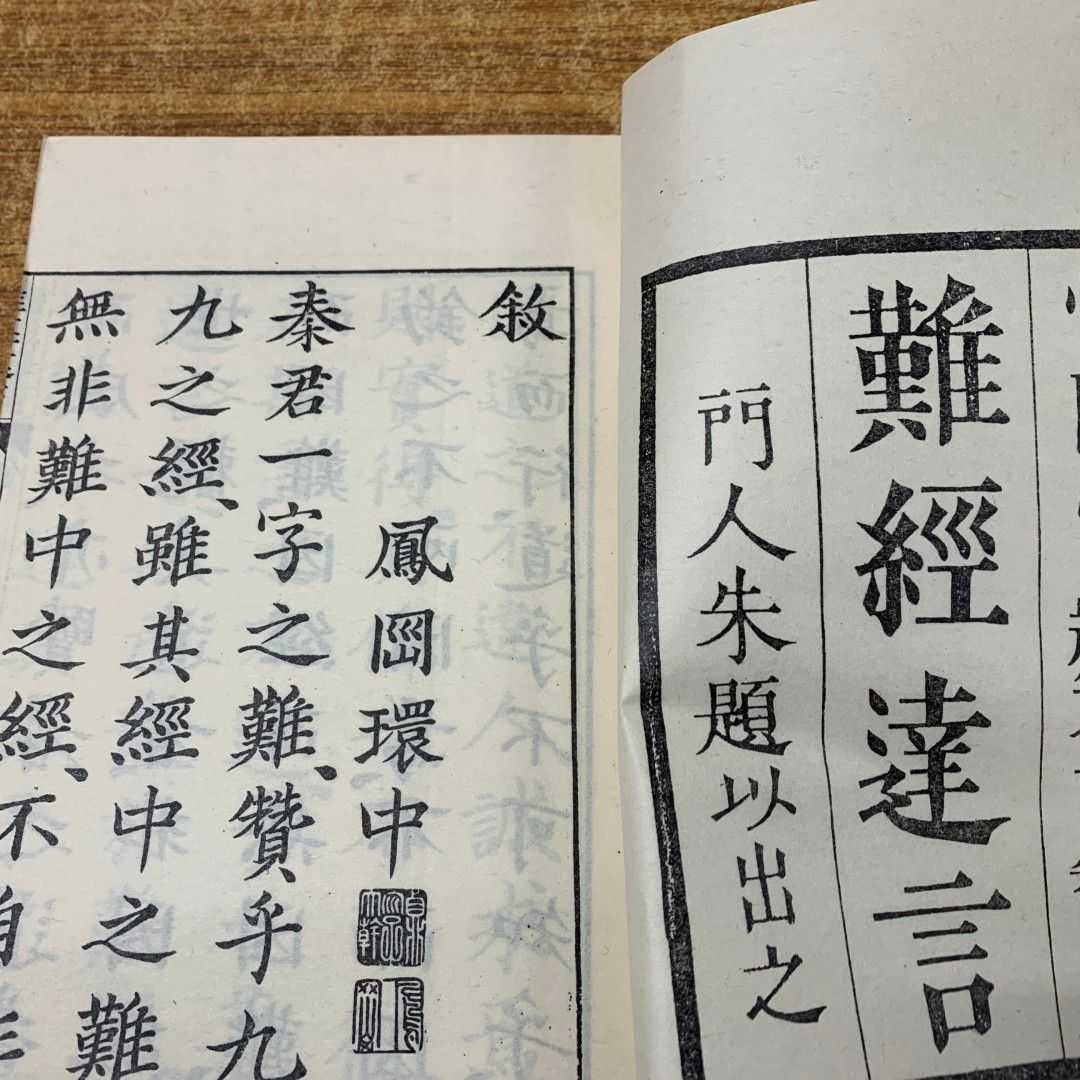 難經達言
門人朱題以出之
敘
鳳岡環中
秦君一字之難、贊乎九
九之經、雖其經中之難
無非難中之經、不自非